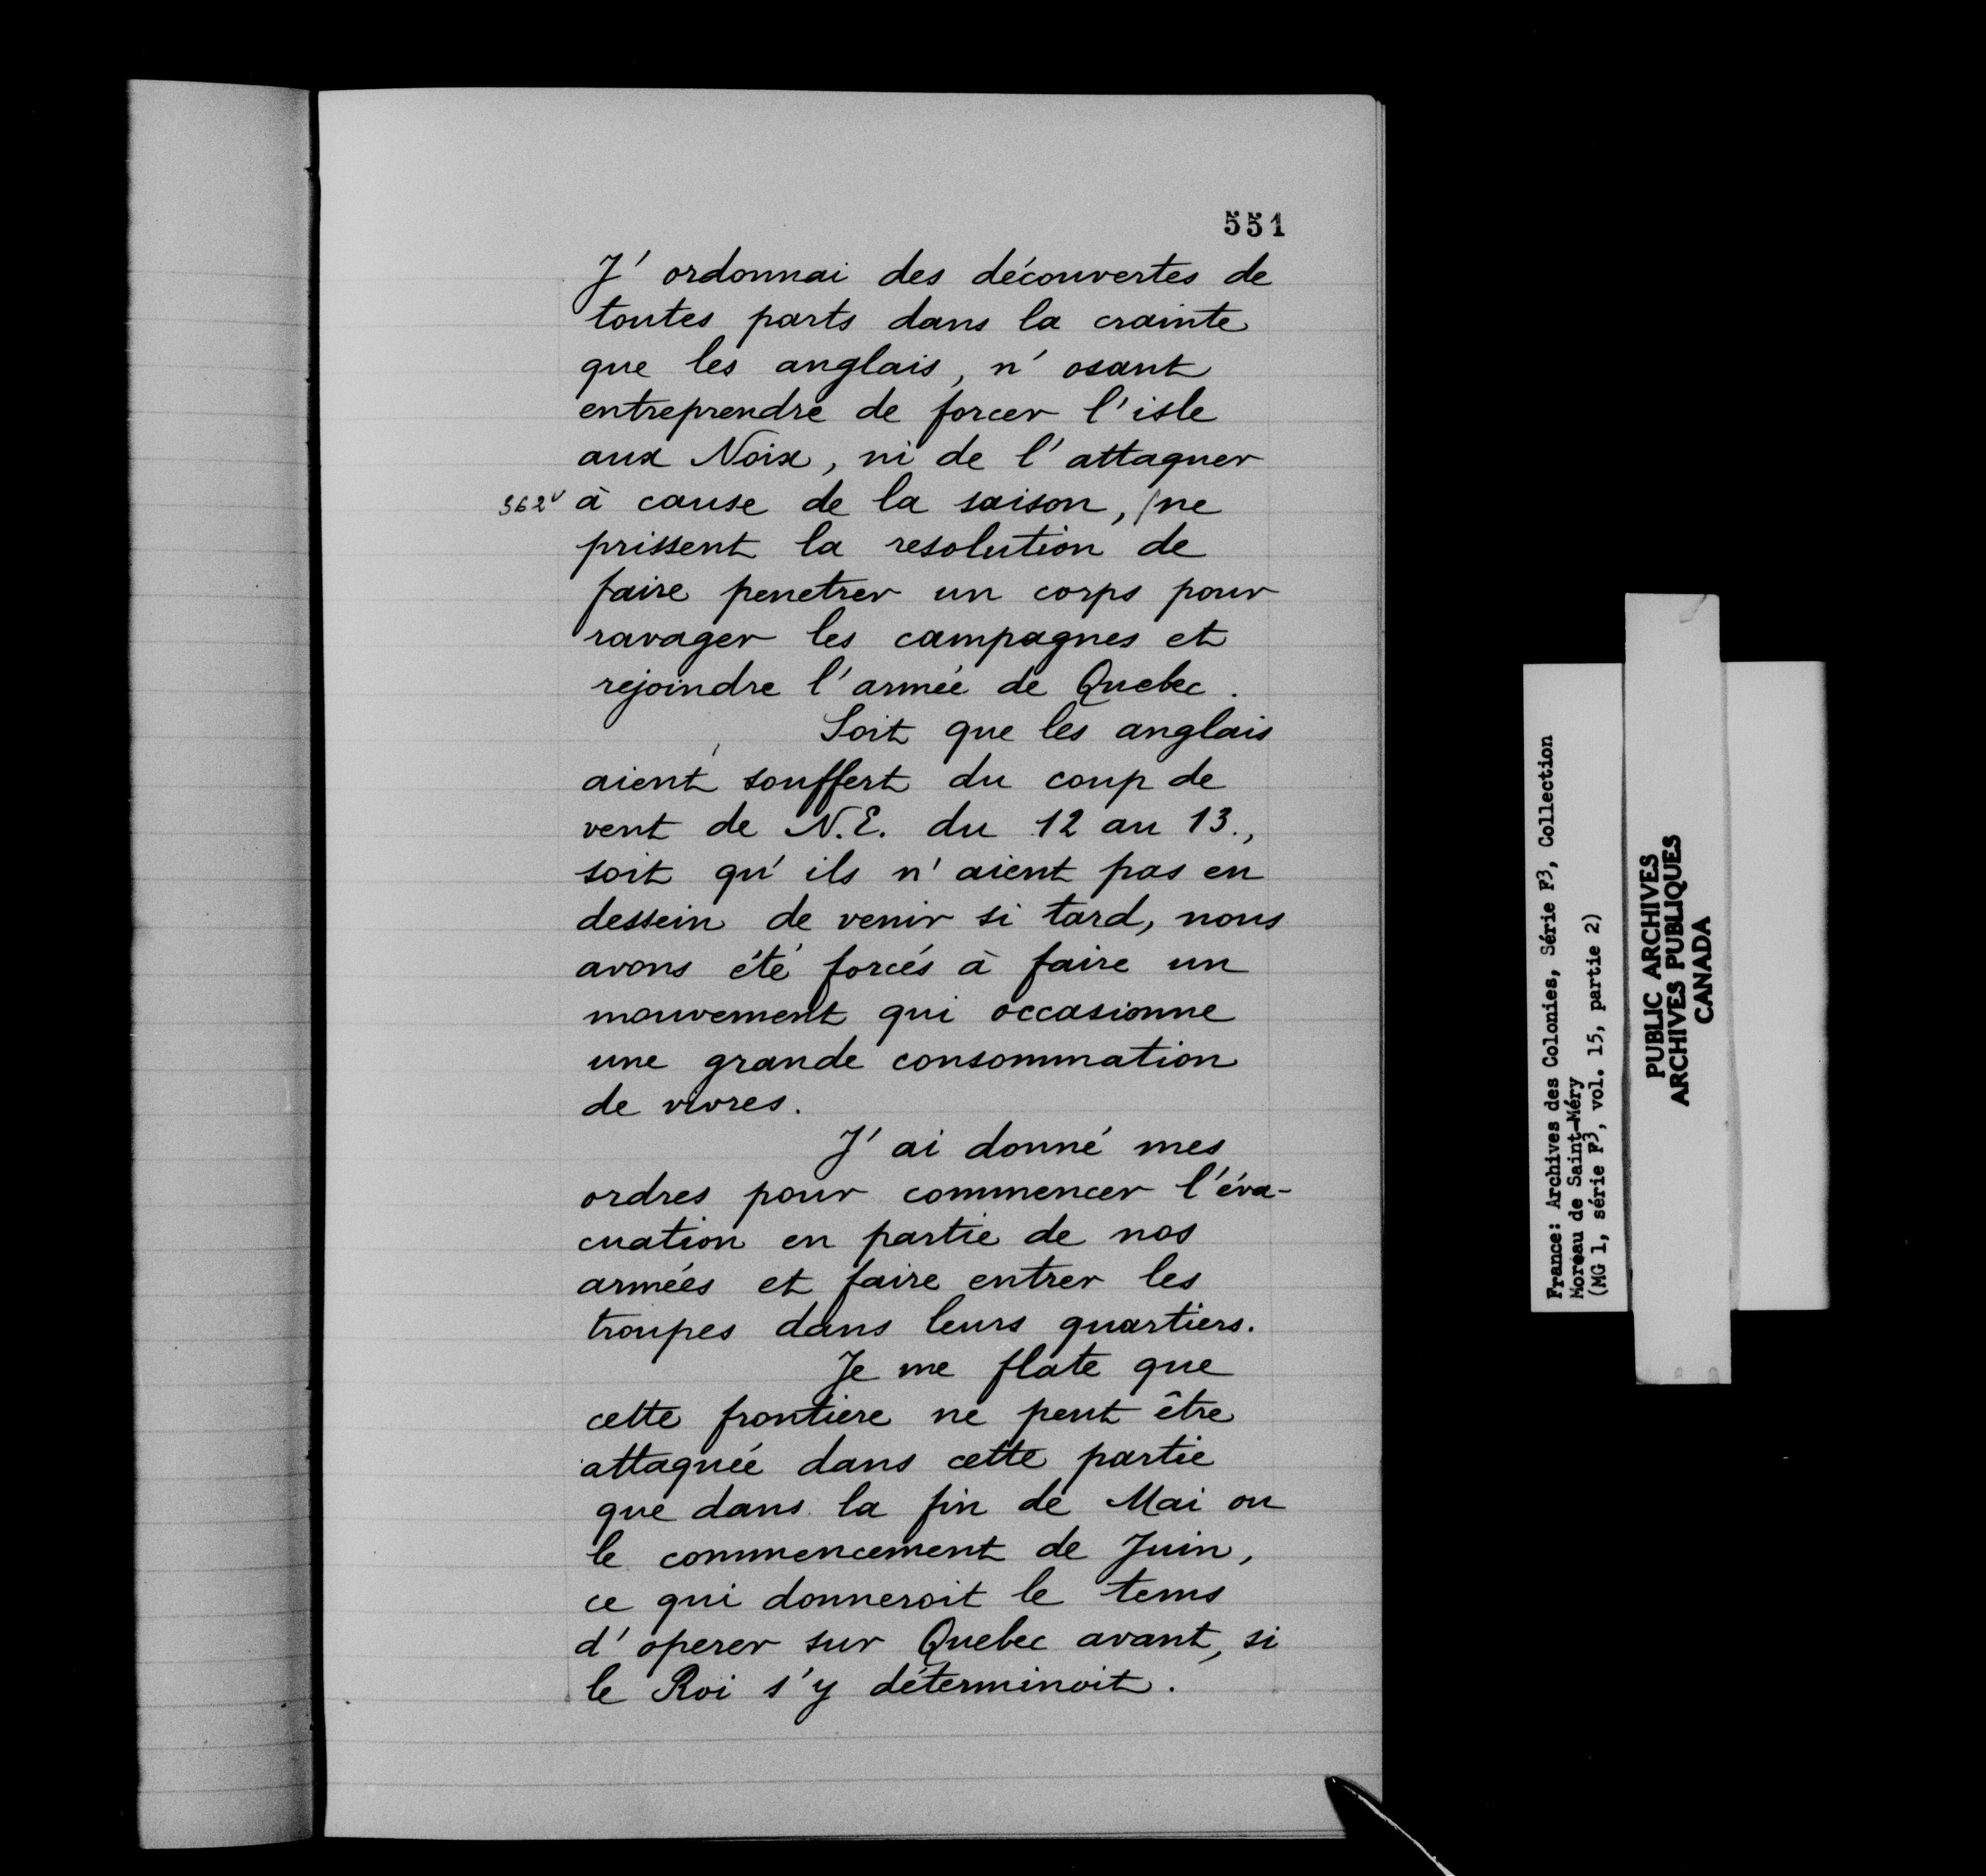 551
J' ordonnai des découvertes de
toutes parts dans la crainte
que les anglais, n' osant
entreprendre de forcer l'isle
aux Noix, ni de l' attaquer
362v à cause de la saison, /ne
prissent la resolution de
faire penetrer un corps pour
ravager les campagnes et
rejoindre l'armée de Quebec.
Soit que les anglais
aient souffert du coup de
vent de N.E. du 12 au 13.,
soit qu' ils n' aient pas eu
dessein de venir si tard, nous
avons été forcés à faire un
mouvement qui occasionne
une grande consommation
de vivres.
J' ai donné mes
ordres pour commencer l'éva-
cuation en partie de nos
armées et faire entrer les
troupes dans leurs quartiers.
Je me flate que
cette frontiere ne peut être
attaquée dans cette partie
que dans la fin de Mai ou
le commencement de Juin,
ce qui donneroit le tems
d' operer sur Quebec avant, si
le Roi s'y déterminoit.
France: Archives des Colonies, Série F3, Collection
Moreau de Saint-Méry
(MG 1, série F3, vol. 15, partie 2)
PUBLIC ARCHIVES
ARCHIVES PUBLIQUES
CANADA